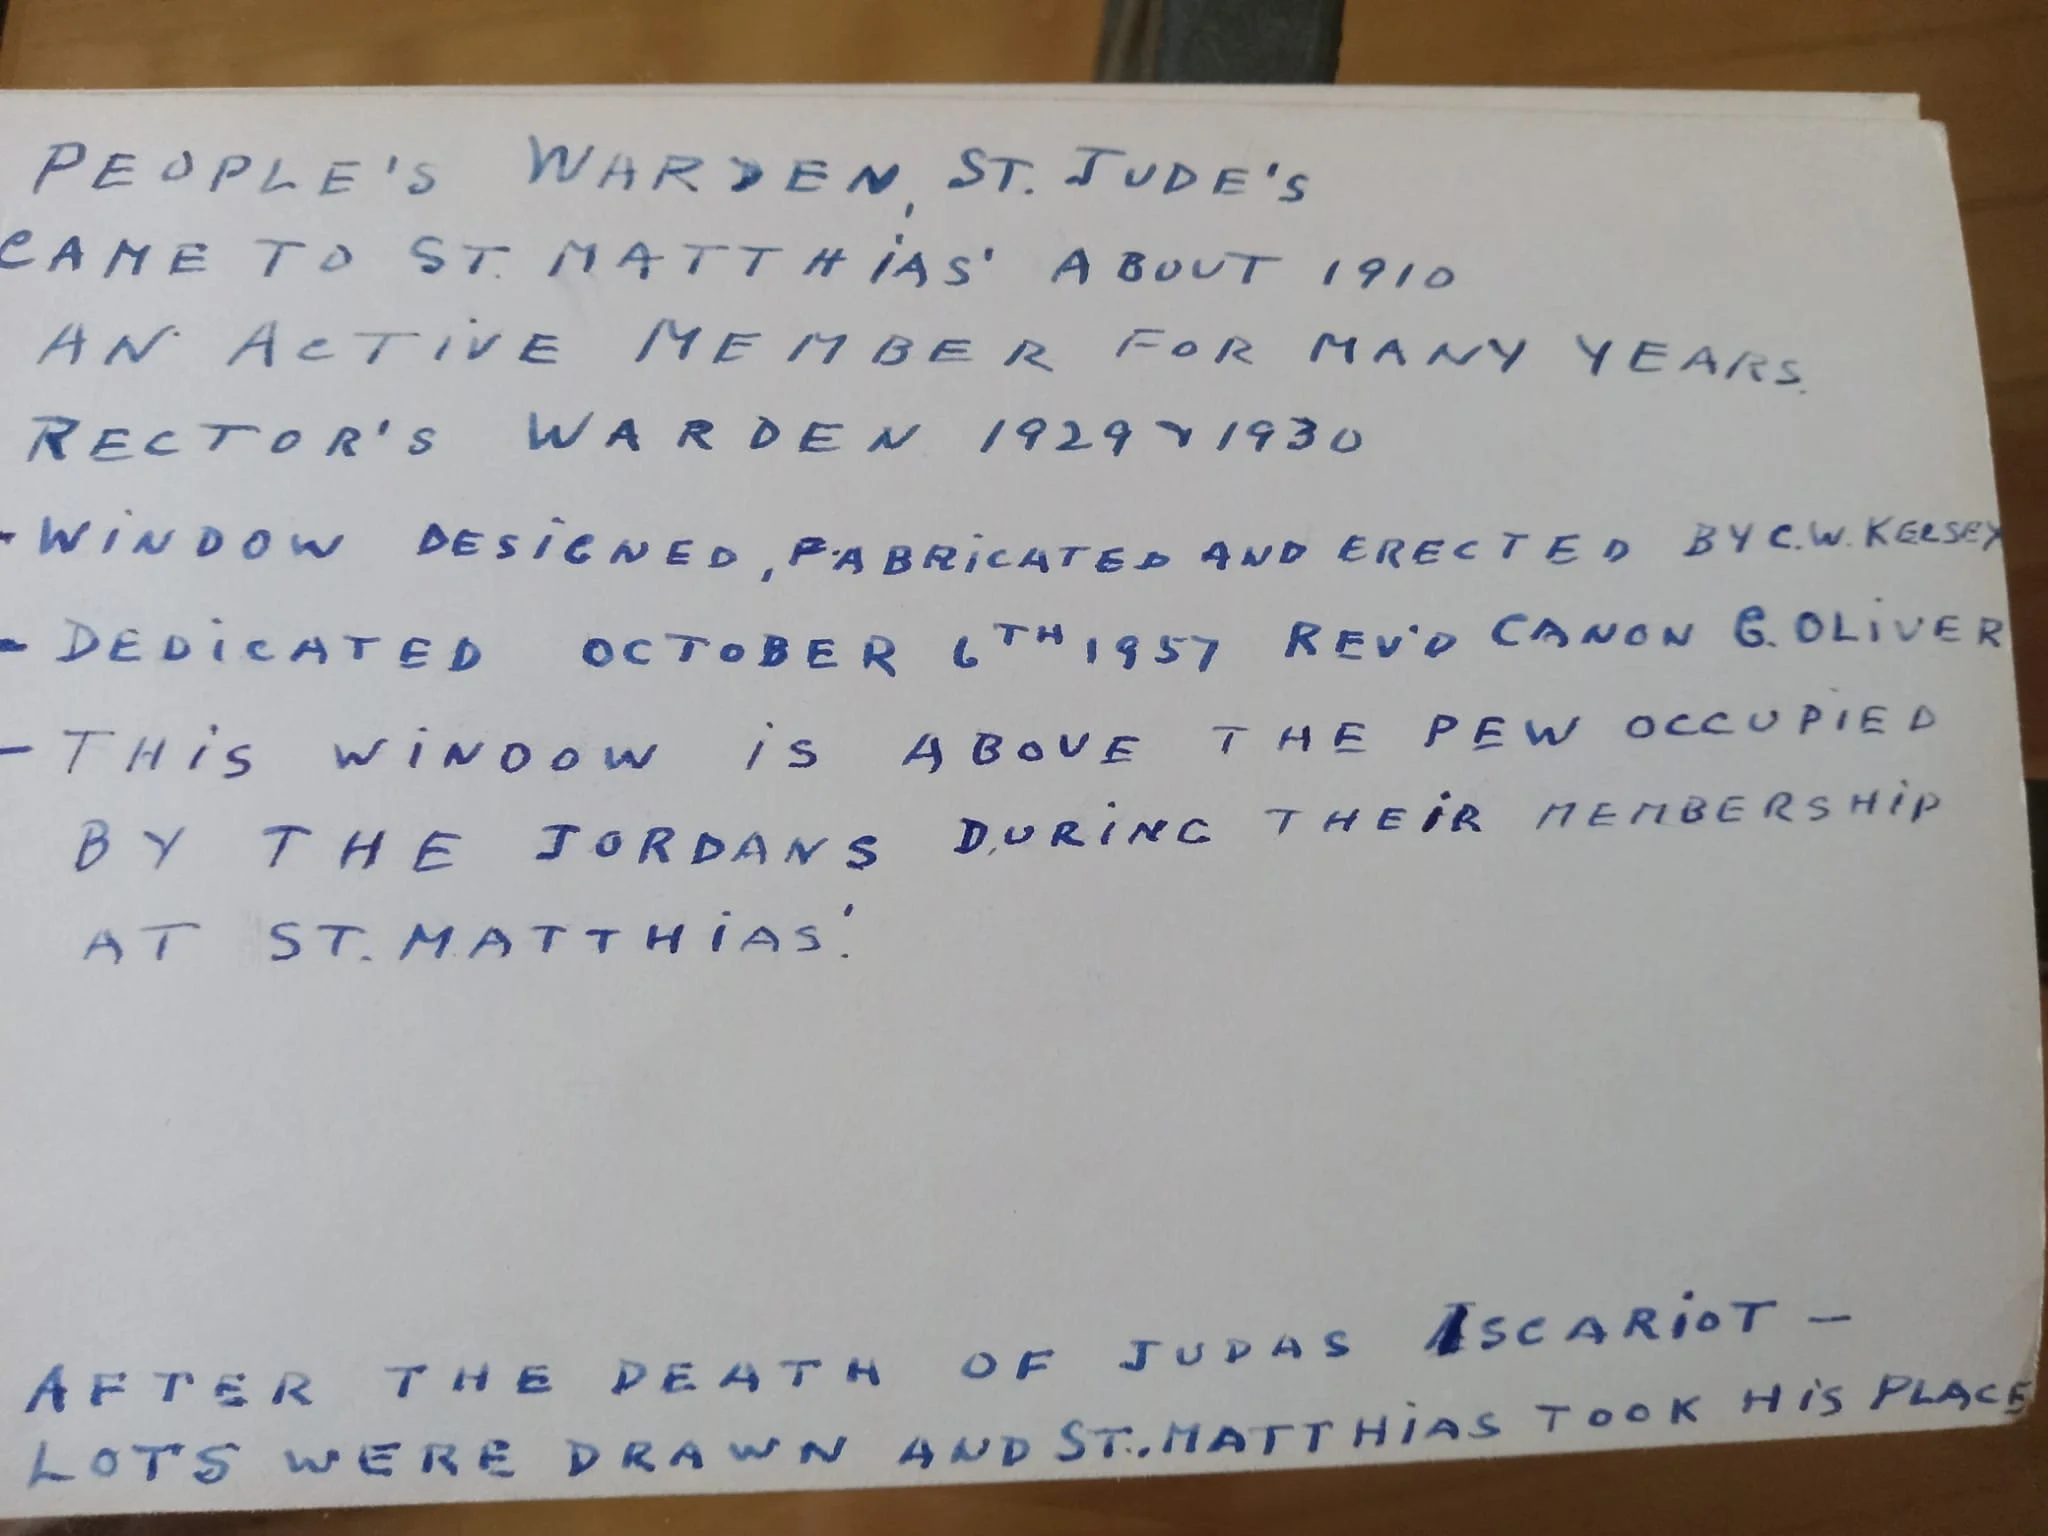 PEOPLE'S WARDEN, ST. JUDE'S
CAME TO ST. MATTHiAS' ABOUT 1910
AN ACTiVE MEMBER FOR MANY YEARS.
RECTOR'S WARDEN 1929 & 1930
- WiNDOW DESiGNED, FABRiCATED AND ERECTED BY C.W. KELSEY
- DEDiCATED OCTOBER 6TH 1957 REV'D CANON G. OLiVER
- THiS WiNDOW iS ABOVE THE PEW OCCUPIED
BY THE JORDANS DURiNG THEiR MEMBERSHiP
AT ST. MATTHiAS'.
AFTER THE DEATH OF JUDAS ISCARiOT -
LOTS WERE DRAWN AND ST. MATTHiAS TOOK HiS PLACE